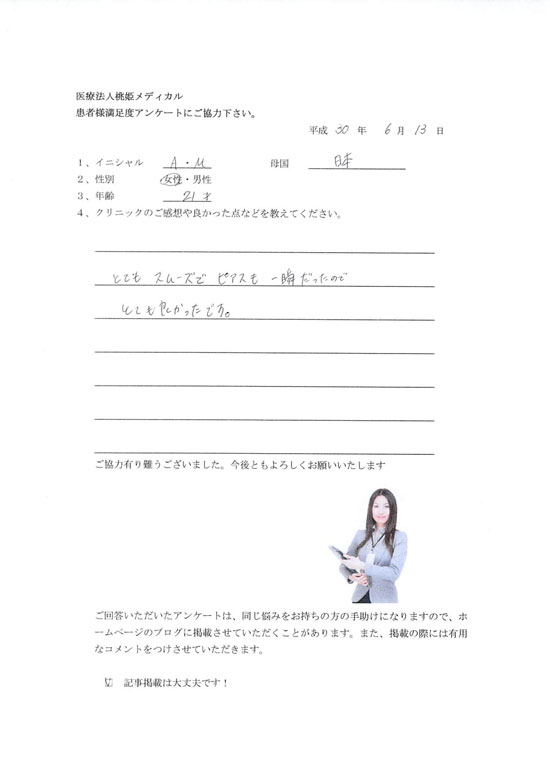 医療法人桃姫メディカル
患者様満足度アンケートにご協力下さい。
平成 30 年 6 月 13 日
1、イニシャル A・M 母国 日本
2、性別 女性・男性
3、年齢 21才
4、クリニックのご感想や良かった点などを教えてください。
とても スムーズで ピアスも 一瞬だったので
とても良かったです。
ご協力有り難うございました。今後ともよろしくお願いいたします
ご回答いただいたアンケートは、同じ悩みをお持ちの方の手助けになりますので、ホ
ームページのブログに掲載させていただくことがあります。また、掲載の際には有用
なコメントをつけさせていただきます。
☑ 記事掲載は大丈夫です!